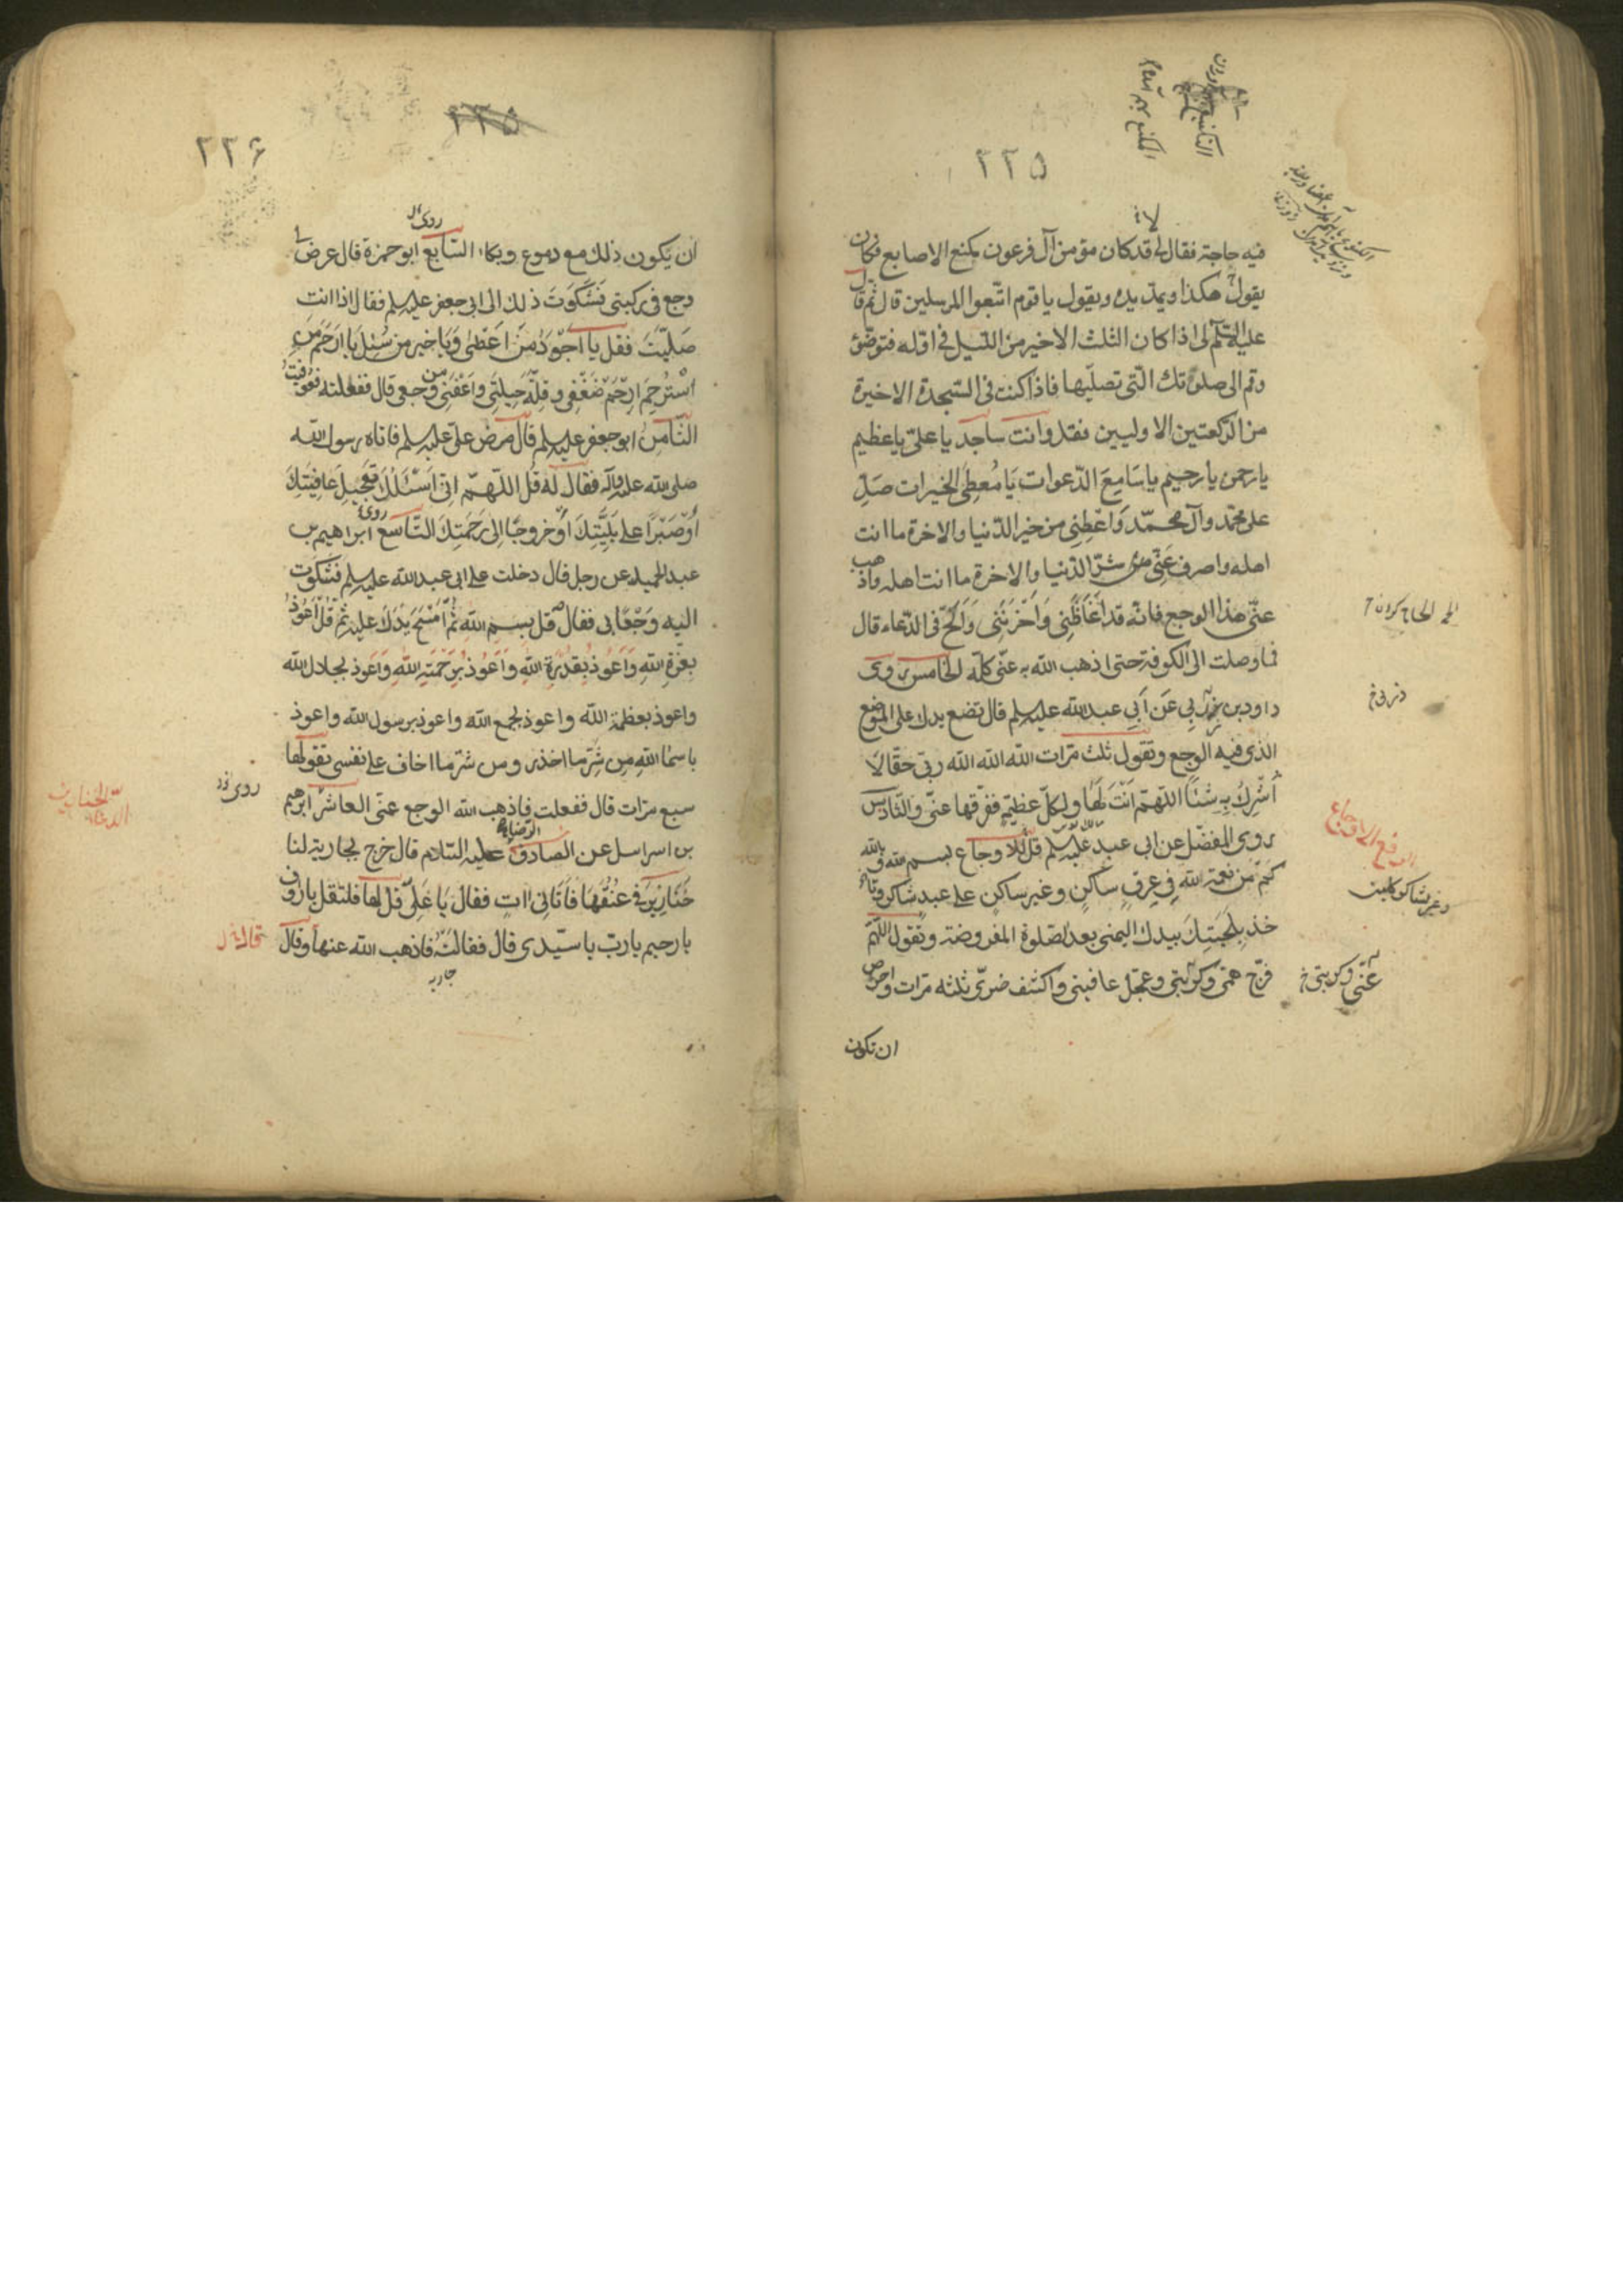 ٢٢٥
فيه حاجة فقال لى قد كان مؤمن آل فرعون مكنع الاصابع فكان
يقول هكذا ويمد يده ويقول يا قوم اتبعوا المرسلين قال ثم قال
عليه السلم لى اذا كان الثلث الاخير من الليل فى اوله فتوضئ
وقم الى صلوتك التى تصليها فاذا كنت فى السجدة الاخيرة
من الركعتين الاوليين فقل وانت ساجد يا على يا عظيم
يا رحمن يا رحيم يا سَامِعَ الدّعوات يَا مُعطِىَ الخيرات صَلِّ
على محمّد وآل محمّد وَاَعْطِنِى من خير الدّنيا والاخرة ما انت
اهله واصرف عَنّى من شرّ الدّنيا والاخرة ما انت اهله واذهب
عنّى هذا الوجع فانّه قد اَغَاظَنِى وَاَحْزَنَنِى وَاَلحّ فى الدّعاء قال
فما وصلت الى الكوفة حتى اذهب الله به عنّى كلّه الخامس روى
داود بن عَن اَبِى عبد الله عليه سلم قال تضع يدك على الموضع
الذى فيه الوجع وتقول ثلث مرّات الله الله الله ربّى حقّا لا
اُشْرِكُ بِهِ شَيْئًا اللّهمّ اَنْتَ لَهَا ولكلّ عظيمةٍ ففرّقها عنّى والسّادس
روى المفضّل عن ابى عبد الله عليه سلم قل للاوجاع بسم الله وبالله
كَمْ مِن نعمة اللهِ فِى عِرقٍ ساكنٍ وغير ساكنٍ على عبدٍ شاكرٍ وتأ
خذ بِلِحْيَتِكَ بيدك اليمنى بعد الصّلوة المفروضة وتقول اللّهمّ
فرّج عنّى كُرْبتى وعجّل عافيتى واكشف ضرّى ثلثه مرّات واحرص
ان تكون
الدفع الاوجاع
وغير شاكر
عنّى وكربتى خ
٢٢٥
٢٢۶
ان يكون ذلك مع دموع وبكاء السّابع روى ابو حمزة قال عرض لى
وجع فى ركبتى فَشَكَوتَ ذلك الى ابى جعفر عليه سلم فقال اذا انت
صَلّيْتَ فقل يا اَجْوَدَ مَنْ اَعْطى وَيَا خير من سُئِلَ يَا اَرْحَمَ مَنِ
اسْتُرْحِمَ اِرْحَمْ ضَعْفِى وقِلّة حِيلَتِى وَاَعْفِنِى من وجعى قال ففعلته فعوفيتُ
الثّامن ابو جعفر عليه سلم قال مرض علىّ عليه سلم فاتاه رسول الله
صلى الله عليه وآله فقال له قل اللّهمّ انّى اَسْئَلُكَ تَعْجِيلَ عَافِيَتِكَ
اَوْ صَبْرًا على بَلِيَّتِكَ اَوْ خروجًا الى رَحمَتِكَ التّاسع روى ابراهيم بن
عبد الحميد عن رجل قال دخلت على ابى عبد الله عليه سلم فشكوت
اليه وَجْعًا بى فقال قل بسم الله ثُمَّ امْسَحْ يَدَكَ عليه ثمّ قُلْ اَعُوذُ
بِعِزّةِ اللهِ وَاَعُوذ بِقُدْرَةِ اللهِ وَاَعُوذ بِرَحْمَتِهِ اللهِ وَاَعوذ بجلال الله
واعوذ بعظمة الله واعوذ بجمع الله واعوذ برسول الله واعوذ
باسمَاءِ اللهِ مِن شَرِّ ما احذر ومن شرّ ما اخاف على نفسى تقولها
سبع مرّات قال ففعلت فاذهب الله الوجع عنّى العاشر ابراهيم
بن اسراسل عن الصادق الرّضا عليه السّلام قال خرج بجارية لنا
خَنَازِيْرَ فى عنُقِهَا فَاَتَانِى اٰتٍ فقال يَا عَلِىّ قل لها فلتقل يا رؤف
يا رحيم يا ربّ يا سيّدى قال فقالته فاذهب الله عنها وقال
جاريه